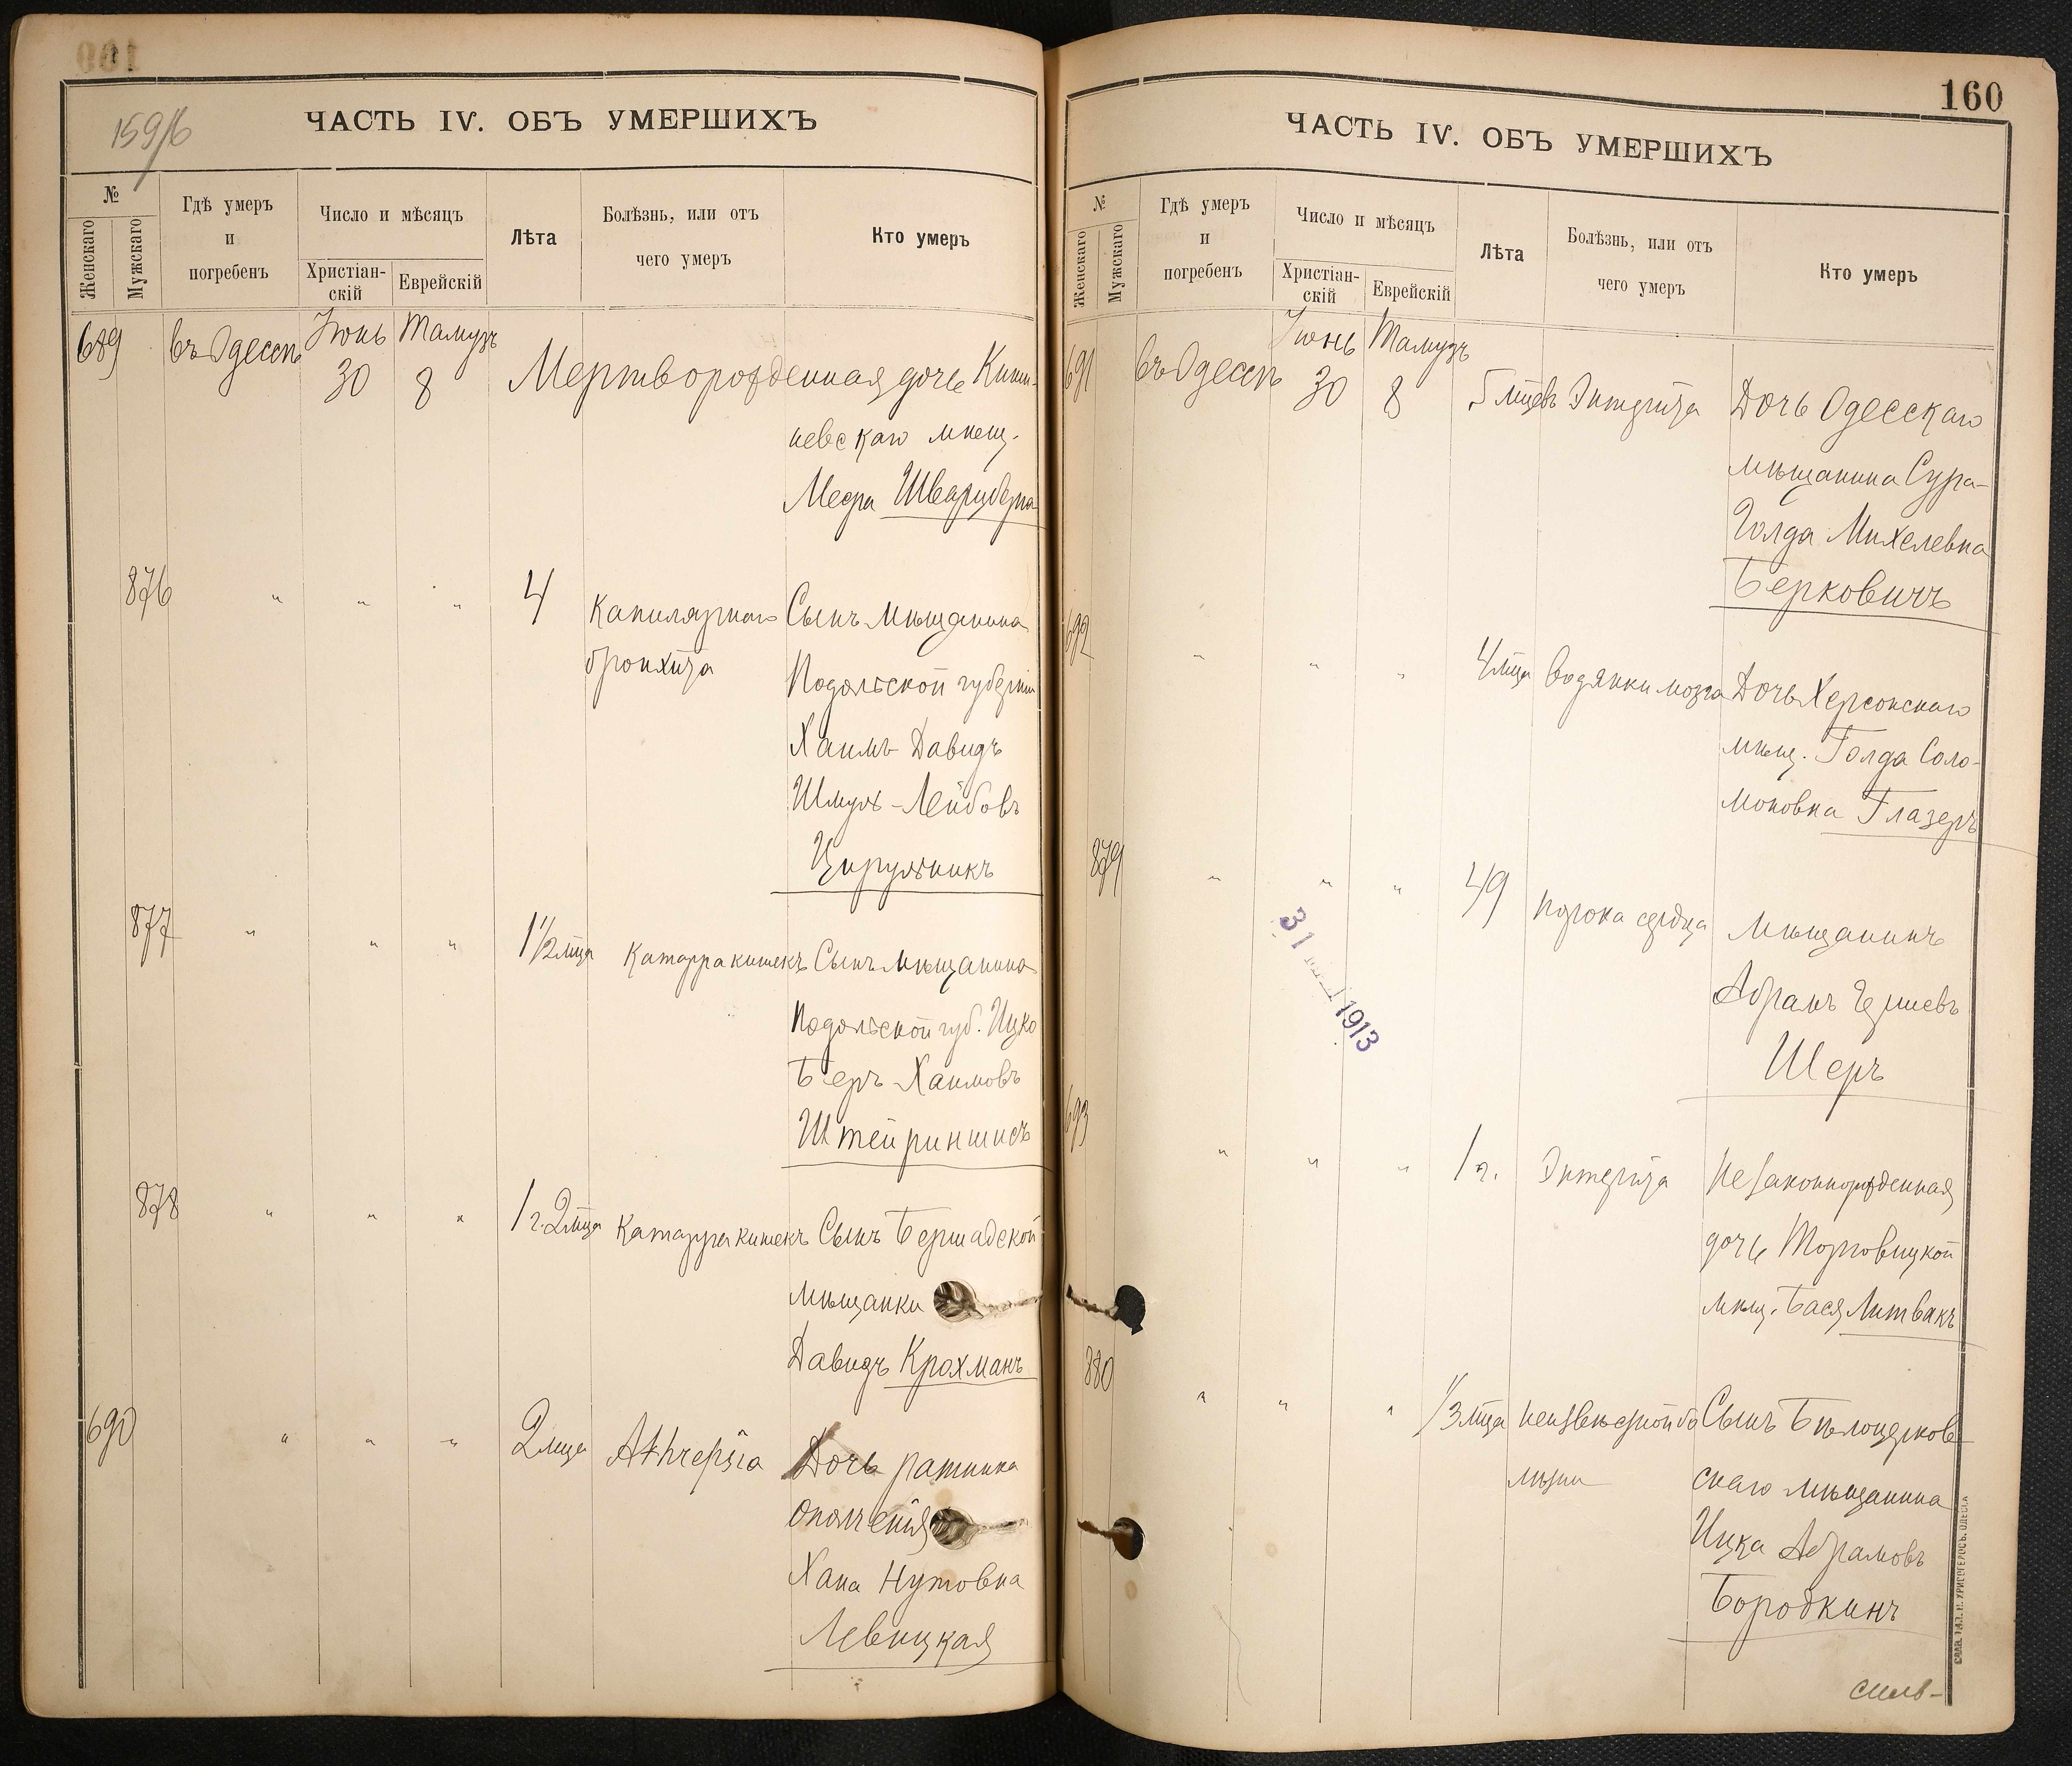 159/6
ЧАСТЬ IV. ОБЪ УМЕРШИХЪ
№
Женскаго
Мужскаго
Гдѣ умеръ
и
погребенъ
Число и мѣсяцъ
Христіан-
скій
Еврейскій
Лѣта
Болѣзнь, или отъ
чего умеръ
Кто умеръ
689 въ Одессѣ Іюнь 30 Тамузъ 8 Мертворожденная дочь Киши-
невскаго мѣщ.
Меера Шварцберга
876 " " " 4 Капилярнаго Сынъ мѣщанина
бронхита Подольской губерніи
Хаимъ-Давидъ
Шмуль-Лейбовъ
Цирульникъ
877 " " " 1 1/2 мца Катарра кишекъ Сынъ мѣщанина
Подольской губ. Ицко
Беръ Хаимовъ
878 " " " 1 г. 2 мца Катарра кишекъ Сынъ Бершадской
мѣщанки
Давидъ Крохманъ
690 " " " 2 мца Athrepsia Дочь ратника
ополченія
Хана Нутовна
Левицкая
160
ЧАСТЬ IV. ОБЪ УМЕРШИХЪ
№
Женскаго
Мужскаго
Гдѣ умеръ
и
погребенъ
Число и мѣсяцъ
Христіан-
скій
Еврейскій
Лѣта
Болѣзнь, или отъ
чего умеръ
Кто умеръ
691 въ Одессѣ Іюнь 30 Тамузъ 8 5 мцевъ Энтерита Дочь Одесскаго
мѣщанина Сура-
Голда Михелевна
Берковичъ
692 " " " 4 мца Водянки мозга Дочь Херсонскаго
мѣщ. Голда Соло-
моновна Глазеръ
879 " " " 49 Порока сердца Мѣщанинъ
Абрамъ
Шеръ
31 1913
693 " " " 1 г. Энтерита Незаконнорожденная
дочь Торговицкой
мѣщ. Бася Литвакъ
880 " " " 1/3 мца Неизвѣстной бо Сынъ Бѣлоцерков
лѣзни скаго мѣщанина
Ицка Абрамовъ
Бородкинъ